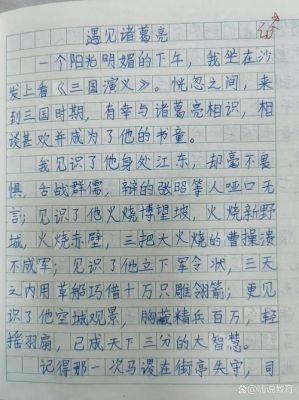 遇见诸葛亮
一个阳光明媚的下午，我坐在沙
发上看《三国演义》。恍忽之间，来
到三国时期，有幸与诸葛亮相识，相
谈甚欢并成为了他的书童。
我见识了他身处江东，却毫不畏
惧，舌战群儒，辩的张昭等人哑口无
言；见识了他火烧博望坡，火烧新野
城，火烧赤壁，三把大火烧的曹操溃
不成军；见识了他立下军令状，三天
之内用草船巧借十万只雕翎箭；更见
识了他空城观景，胸藏精兵百万，轻
摇羽扇，已成天下三分的大智慧。
记得那一次马谡在街亭失守，司